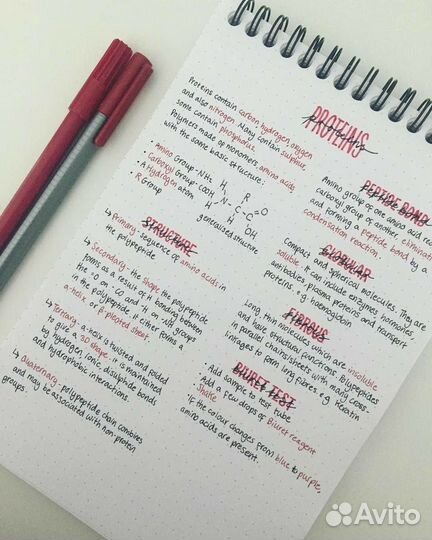 PROTEINS
Proteins contain carbon, hydrogen, oxygen
and also nitrogen. Many contain sulphur,
some contain phosphorus.
Polymers made of monomers, amino acids
with the same basic structure:
· Amino Group-NH₂
· Carboxyl Group-COOH
· A Hydrogen atom
· R Group
H R O
N-C-C
H H OH
generalised structure
STRUCTURE
↳ Primary: sequence of amino acids in
the polypeptide
↳ Secondary: the shape the polypeptide
forms as a result of H bonding between
the =O on -CO and -H on -NH groups
in the polypeptide, it either forms a
α helix, or β pleated sheet.
↳ Tertiary: α-helix is twisted and folded
to give a 3D shape. It is maintained
by hydrogen, ionic, disulphide bonds
and hydrophobic interactions.
↳ Quaternary: polypeptide chain combines
and may be associated with non-protein
groups.
PEPTIDE BOND
Amino group of one amino acid rea
carboxyl group of another, eliminati
and forming a peptide bond by a
condensation reaction.
GLOBULAR
Compact and spherical molecules. They are
soluble. It can include enzymes, hormones,
antibodies, plasma proteins and transport
proteins. e.g. haemoglobin
FIBROUS
Long, thin molecules which are insoluble
and have structural functions. Polypeptides
in parallel chains/sheets with many cross-
linkages to form long fibres e.g. Keratin
BIURET TEST
· Add sample to test tube
· Add a few drops of Biuret reagent
· Shake
· if the colour changes from blue to purple,
amino acids are present.
Avito